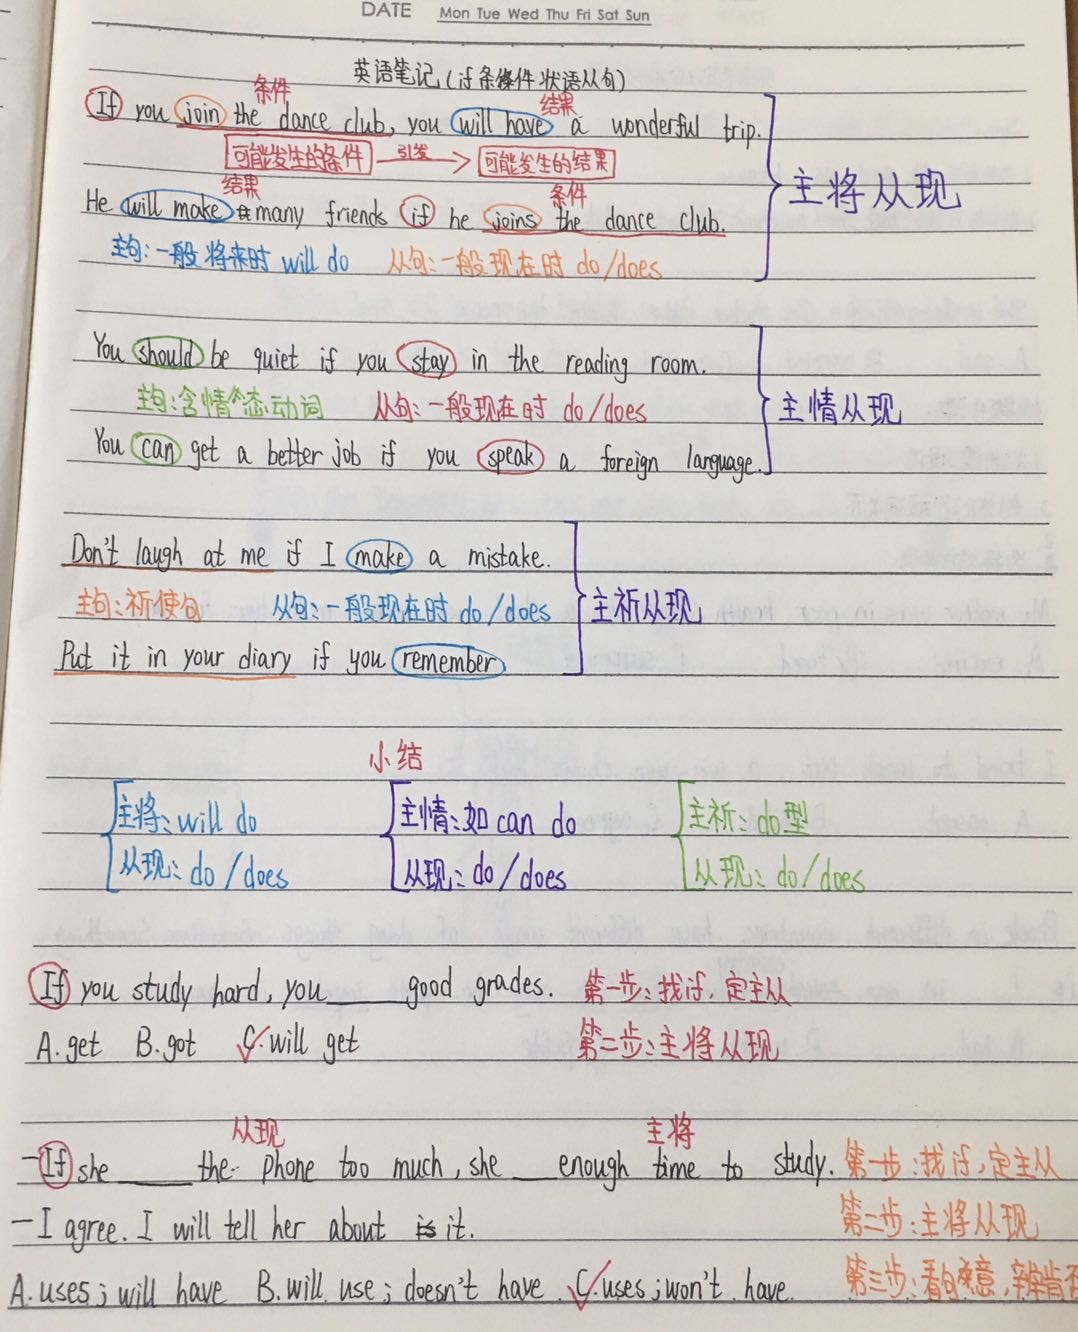 DATE Mon Tue Wed Thu Fri Sat Sun
英语笔记(if 条件状语从句)
条件 结果
If you join the dance club, you will have a wonderful trip.
可能发生的条件 引发 可能发生的结果
主将从现
结果 条件
He will make many friends if he joins the dance club.
主句:一般将来时 will do 从句:一般现在时 do/does
You should be quiet if you stay in the reading room.
主句:含情态动词 从句:一般现在时 do/does
主情从现
You can get a better job if you speak a foreign language.
Don't laugh at me if I make a mistake.
主句:祈使句 从句:一般现在时 do/does
主祈从现
Put it in your diary if you remember.
小结
主将:will do 主情:如 can do 主祈:do型
从现:do/does 从现:do/does 从现:do/does
If you study hard, you ____ good grades. 第一步:找if,定主从
A.get B.got C.will get 第二步:主将从现
从现 主将
-If she ____ the phone too much, she ___ enough time to study. 第一步:找if,定主从
-I agree. I will tell her about it. 第二步:主将从现
A.uses; will have B.will use; doesn't have C.uses; won't have. 第三步:看句意,辨肯否